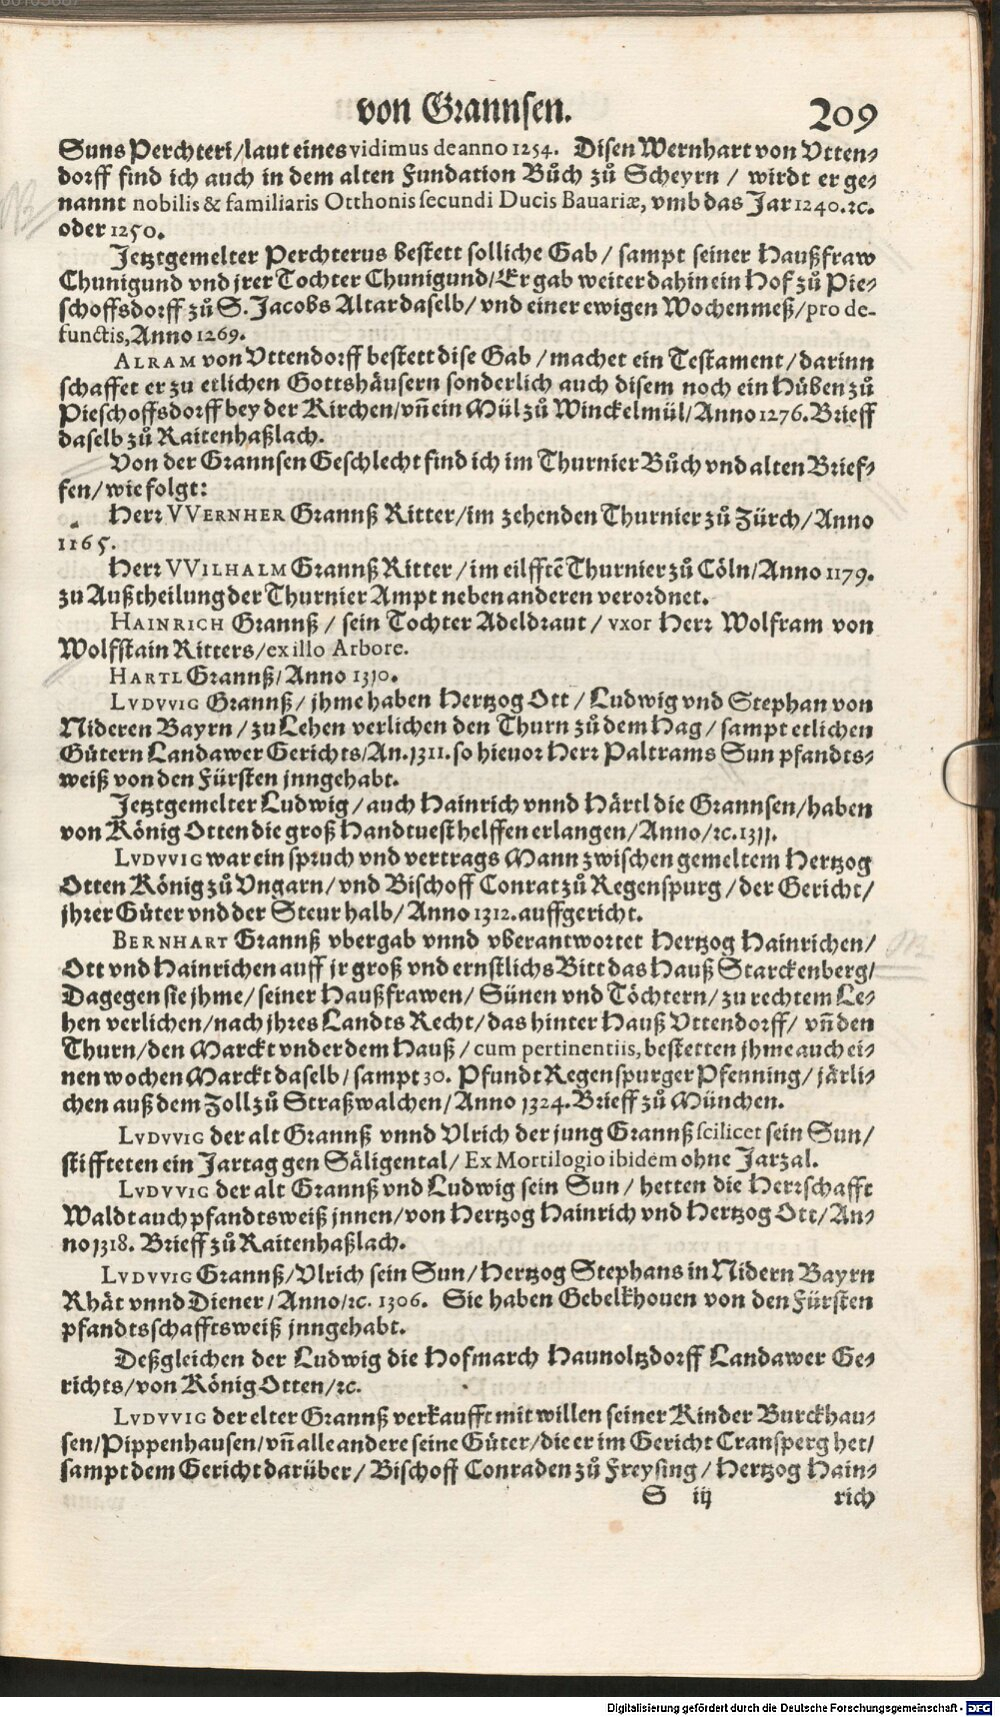 von Grannsen. 209
Suns Perchteri/laut eines vidimus de anno 1254. Disen Wernhart von Vtten⸗
dorff find ich auch in dem alten Fundation Bůch zů Scheyrn / wirdt er ge⸗
nannt nobilis & familiaris Otthonis secundi Ducis Bauariæ, vmb das Jar 1240.ꝛc.
oder 1250.
Jetztgemelter Perchterus bestett solliche Gab / sampt seiner Haußfraw
Chunigund vnd jrer Tochter Chunigund/Er gab weiter dahin ein Hof zů Pie⸗
schoffsdorff zů S. Jacobs Altar daselb/ vnd einer ewigen Wochenmeß/pro de-
functis, Anno 1269.
ALRAM von Vttendorff bestett dise Gab /machet ein Testament/darinn
schaffet er zu etlichen Gottshäusern sonderlich auch disem noch ein Hůben zů
Pieschoffsdorff bey der Kirchen/vñ ein Mül zů Winckelmül/Anno 1276. Brieff
daselb zů Raitenhaßlach.
Von der Grannsen Geschlecht find ich im Thurnier Bůch vnd alten Brief⸗
fen/wie folgt:
Herr VVERNHER Grannß Ritter/im zehenden Thurnier zů Zürch/Anno
1165.
Herr VVILHALM Grannß Ritter /im eilfftẽ Thurnier zů Cöln/Anno 1179.
zu Außtheilung der Thurnier Ampt neben anderen verordnet.
HAINRICH Grannß / sein Tochter Adeldraut / vxor Herr Wolfram von
Wolfstain Ritters/ex illo Arbore.
HARTL Grannß/Anno 1310.
LVDVVIG Grannß/ jhme haben Hertzog Ott / Ludwig vnd Stephan von
Nideren Bayrn /zu Lehen verlichen den Thurn zů dem Hag / sampt etlichen
Gütern Landawer Gerichts/An. 1311. so hieuor Herr Paltrams Sun pfandts⸗
weiß von den Fürsten jnngehabt.
Jetztgemelter Ludwig/auch Hainrich vnnd Härtl die Grannsen/haben
von König Otten die groß Handtuest helffen erlangen/Anno/ꝛc. 1311.
LVDVVIG war ein spruch vnd vertrags Mann zwischen gemeltem Hertzog
Otten König zů Vngarn/vnd Bischoff Conrat zů Regenspurg/der Gericht/
jhrer Güter vnd der Steur halb/Anno 1312. auffgericht.
BERNHART Grannß vbergab vnnd vberantwortet Hertzog Hainrichen/
Ott vnd Hainrichen auff jr groß vnd ernstlichs Bitt das Hauß Starckenberg/
Dagegen sie jhme/seiner Haußfrawen/ Sünen vnd Töchtern/zu rechtem Le⸗
hen verlichen/nach jhres Landts Recht/das hinter Hauß Vttendorff/ vñ den
Thurn/den Marckt vnder dem Hauß /cum pertinentiis, bestetten jhme auch ei⸗
nen wochen Marckt daselb/ sampt 30. Pfundt Regenspurger Pfenning/järli⸗
chen auß dem Zoll zů Straßwalchen/Anno 1324. Brieff zů München.
LVDVVIG der alt Grannß vnnd Vlrich der jung Grannß scilicet sein Sun/
stiffteten ein Jartag gen Säligental/ Ex Mortilogio ibidem ohne Jarzal.
LVDVVIG der alt Grannß vnd Ludwig sein Sun / hetten die Herrschafft
Waldt auch pfandtsweiß jnnen/von Hertzog Hainrich vnd Hertzog Ott/An⸗
no 1318. Brieff zů Raitenhaßlach.
LVDVVIG Grannß/Vlrich sein Sun/Hertzog Stephans in Nidern Bayrn
Rhät vnnd Diener/Anno/ꝛc. 1306. Sie haben Gebelkhouen von den Fürsten
pfandtsschafftsweiß jnngehabt.
Deßgleichen der Ludwig die Hofmarch Haunoltzdorff Landawer Ge⸗
richts/von König Otten/ꝛc.
LVDVVIG der elter Grannß verkaufft mit willen seiner Kinder Burckhau⸗
sen/Pippenhausen/vñ alle andere seine Güter/die er im Gericht Cransperg het/
sampt dem Gericht darüber/ Bischoff Conraden zů Freysing/ Hertzog Hain⸗
S iij rich
Digitalisierung gefördert durch die Deutsche Forschungsgemeinschaft - DFG